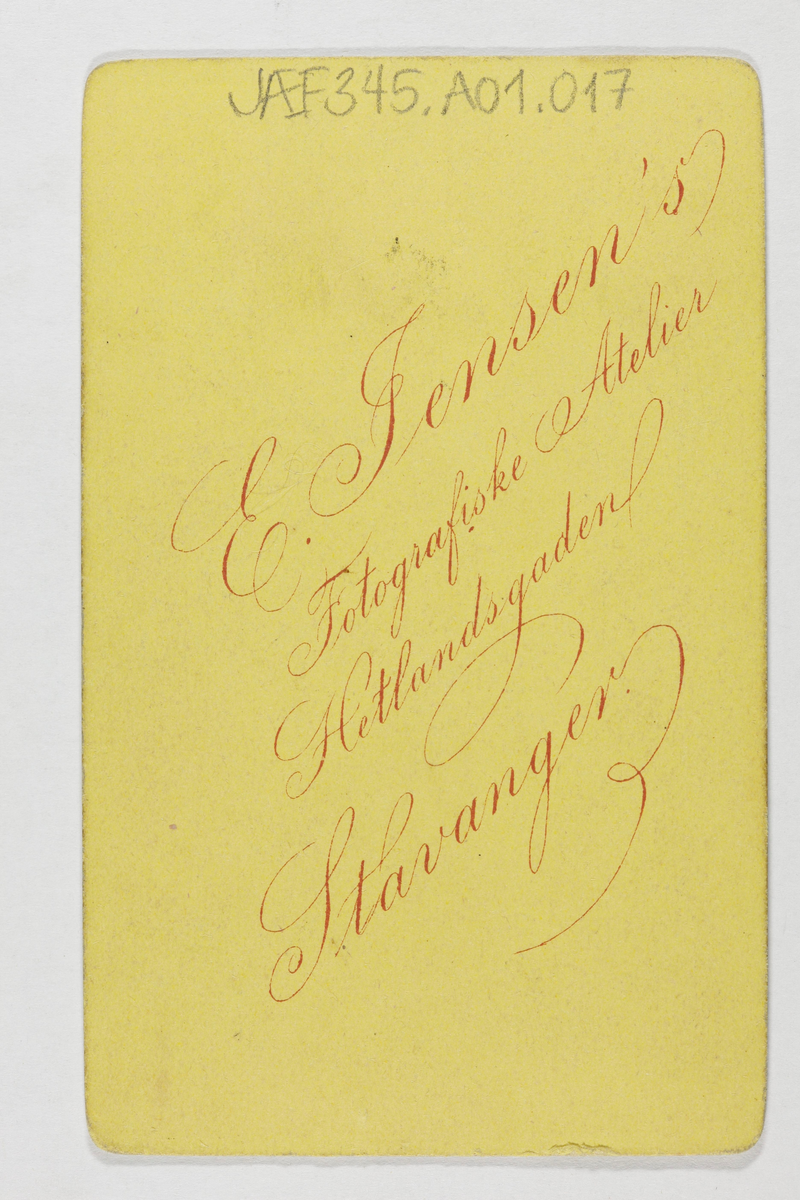 JAF345.A01.017
E. Jensen's
Fotografiske Atelier
Hetlandsgaden
Stavanger.